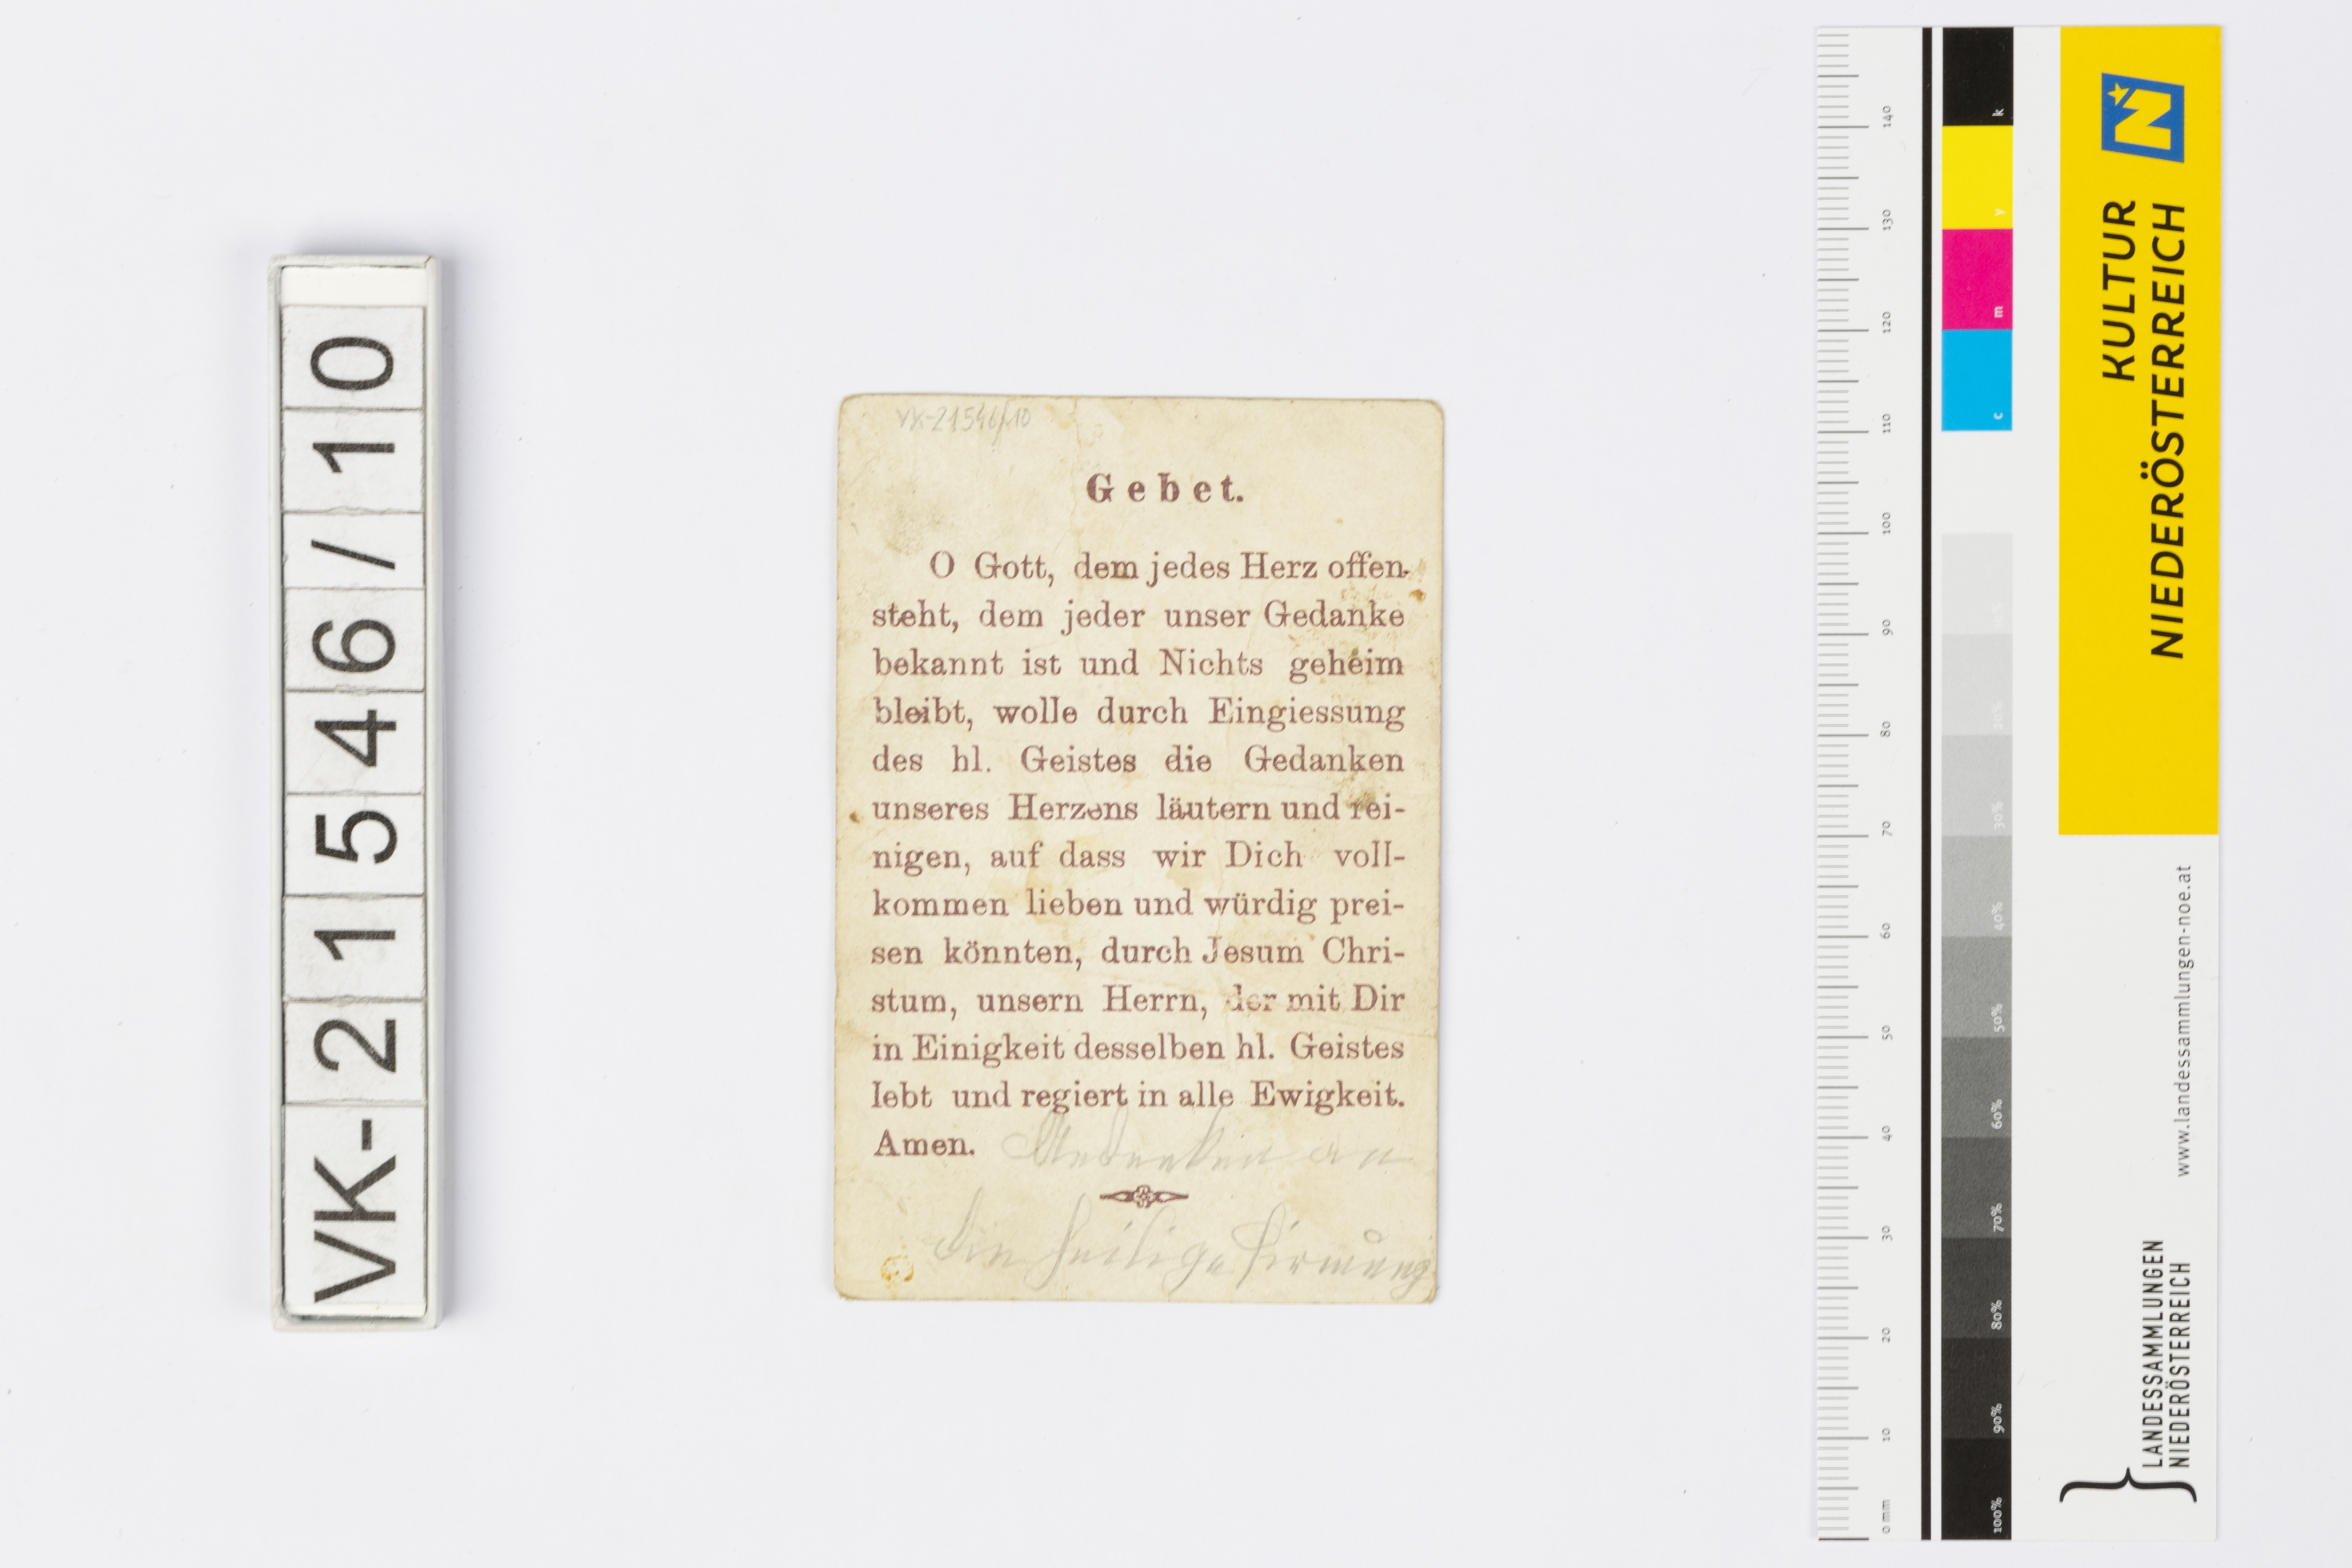 VK-21546/10
VK-21546/10
Gebet.
O Gott, dem jedes Herz offen-
steht, dem jeder unser Gedanke
bekannt ist und Nichts geheim
bleibt, wolle durch Eingiessung
des hl. Geistes die Gedanken
unseres Herzens läutern und rei-
nigen, auf dass wir Dich voll-
kommen lieben und würdig prei-
sen könnten, durch Jesum Chri-
stum, unsern Herrn, der mit Dir
in Einigkeit desselben hl. Geistes
lebt und regiert in alle Ewigkeit.
Amen.
Gedenken an
die heilige Firmung
140
130
120
110
100
90
80
70
60
50
40
30
20
10
0 mm
k
y
m
c
20%
30%
40%
50%
60%
70%
80%
90%
100%
KULTUR
NIEDERÖSTERREICH
www.landessammlungen-noe.at
LANDESSAMMLUNGEN
NIEDERÖSTERREICH